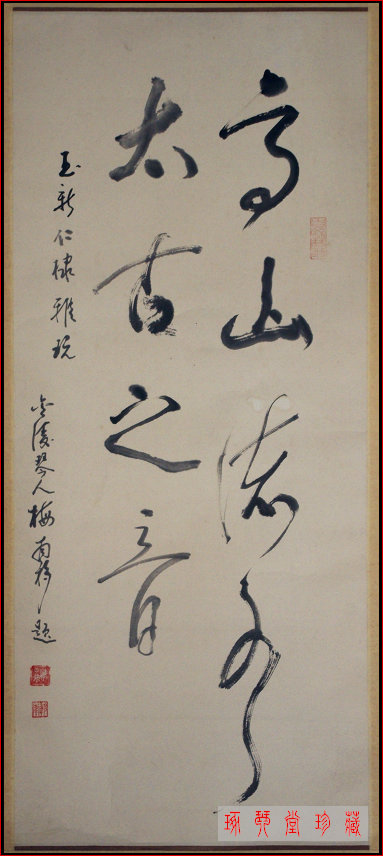 高山流水
太古之音
玉新仁棣雅玩
金陵琴人梅曰强题
琢琴堂珍藏